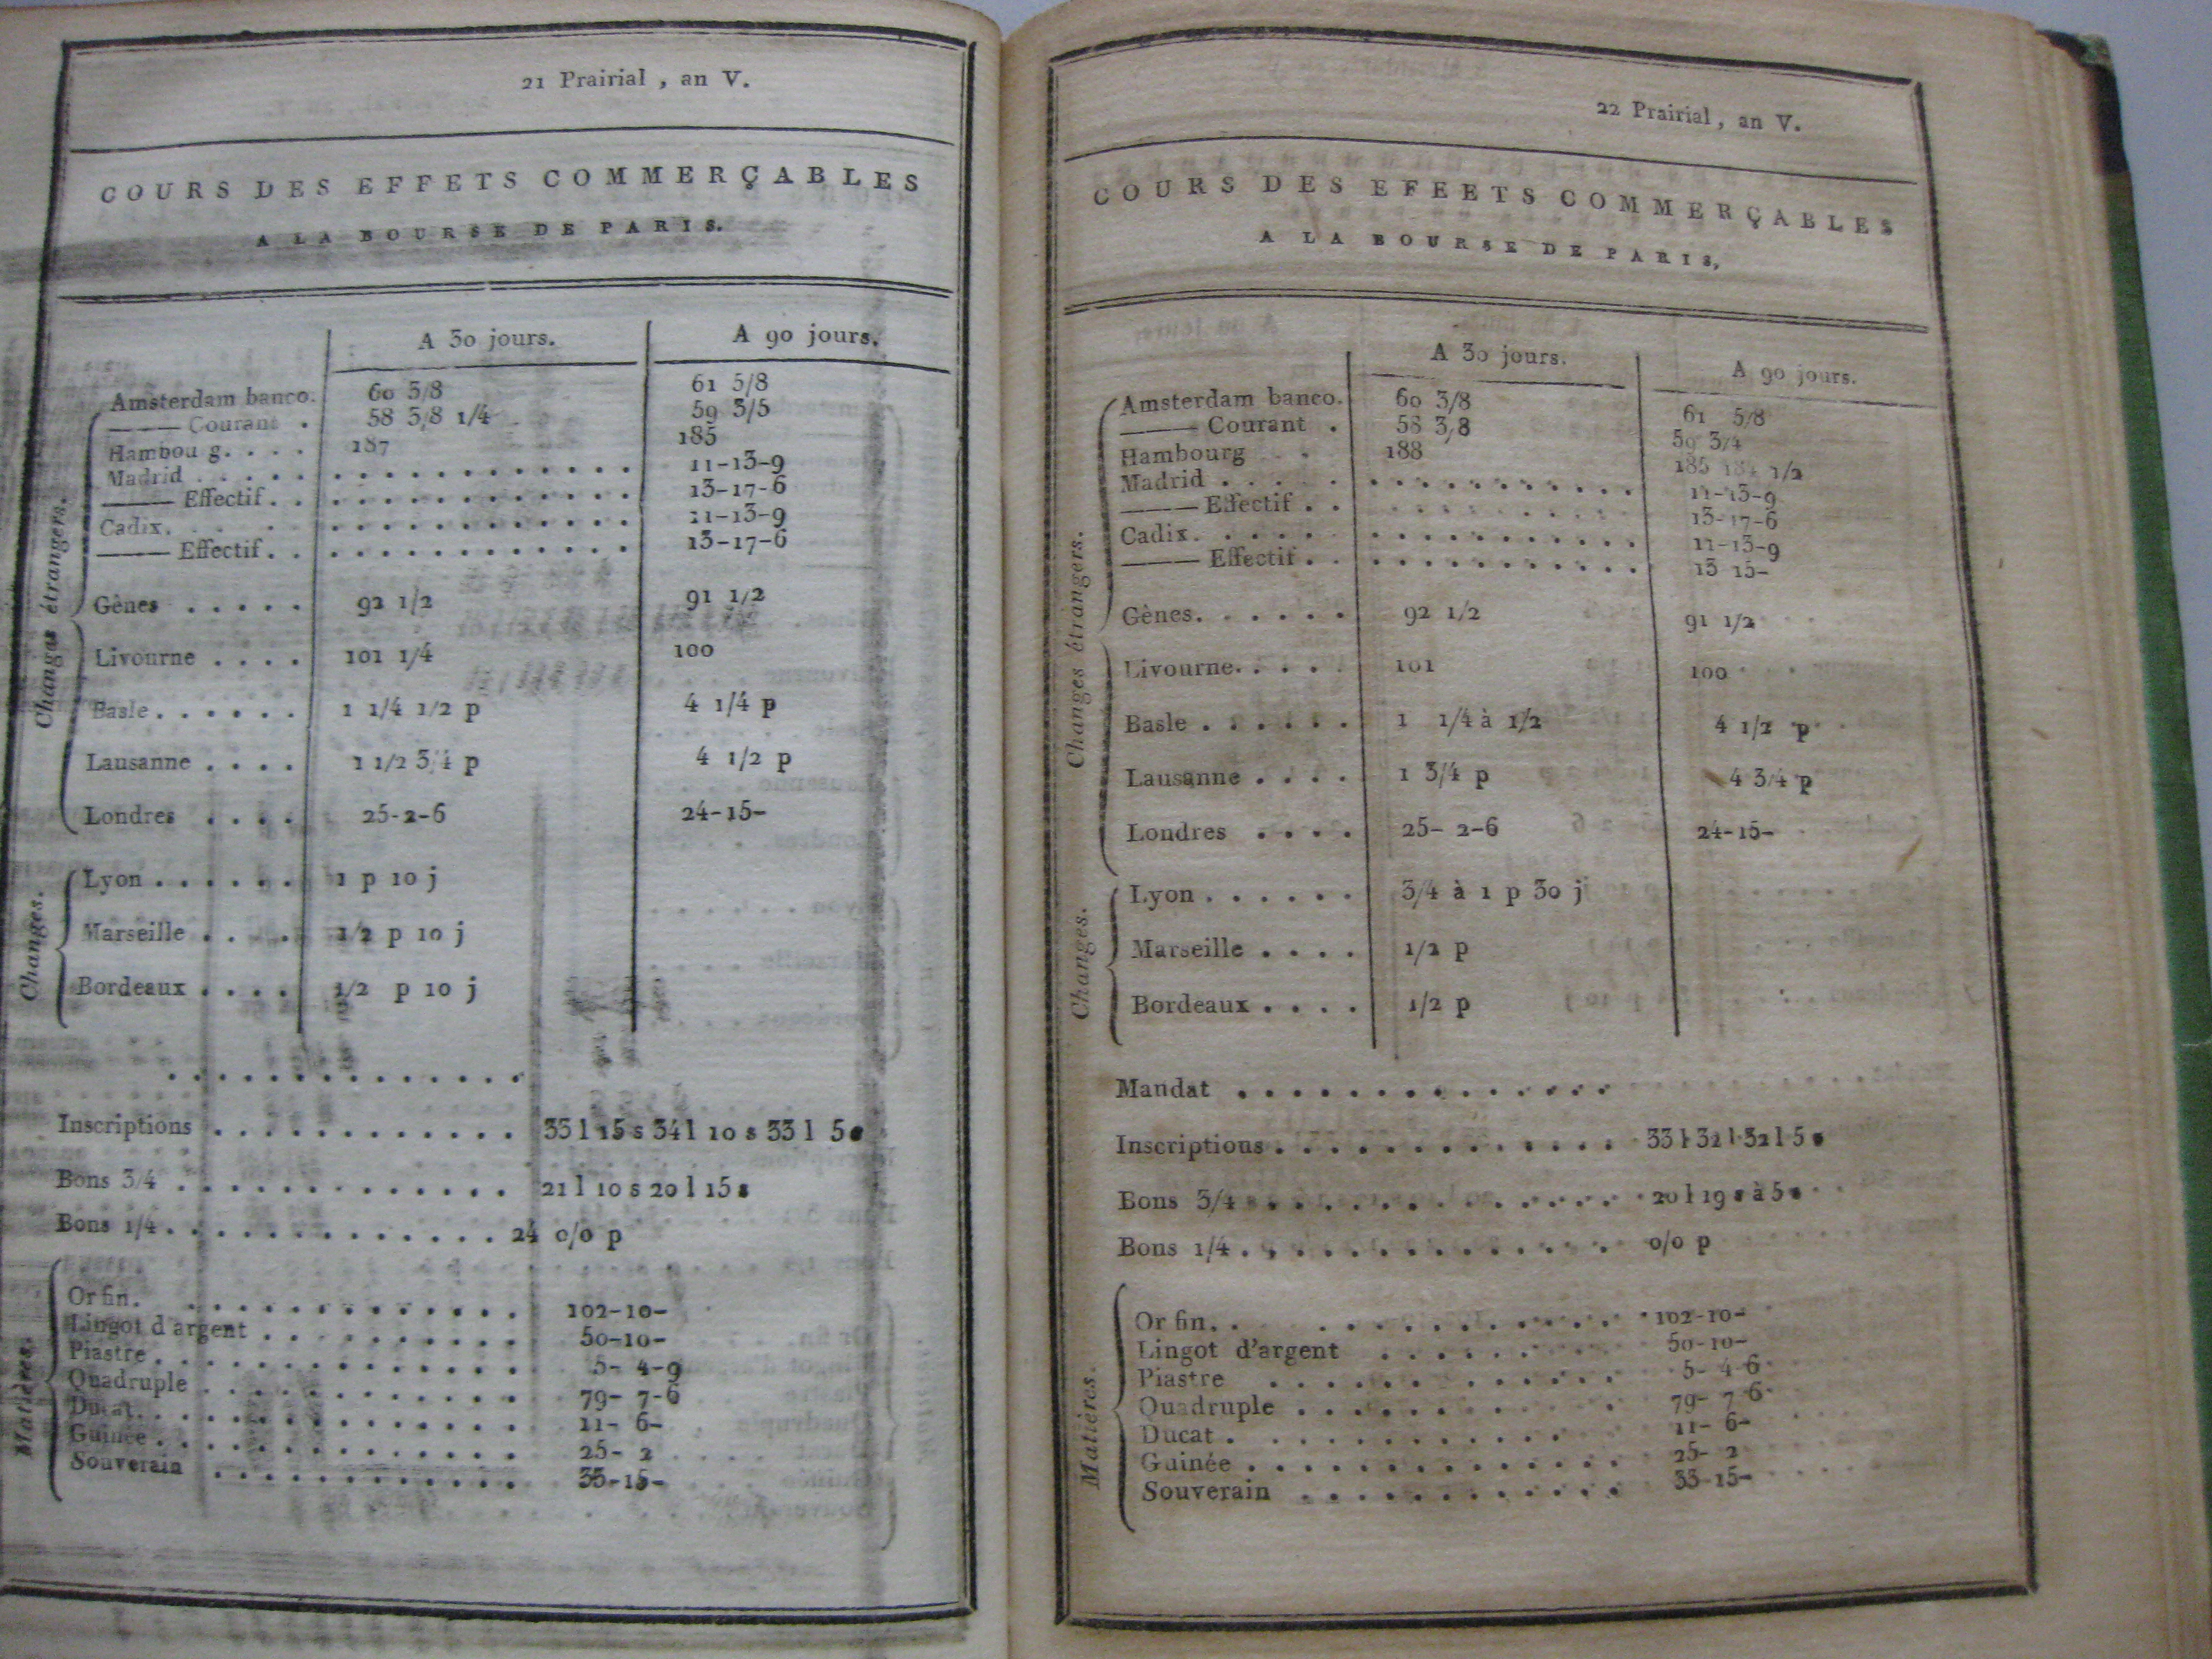 21 Prairial, an V.
COURS DES EFFETS COMMERÇABLES
A LA BOURSE DE PARIS.
A 30 jours. A 90 jours.
Changes étrangers.
Amsterdam banco. 60 3/8 61 5/8
——— Courant . 58 3/8 1/4 59 3/5
Hambou g. . . . 187 185
Madrid . . . . . . . . . . . . . . . . 11-13-9
——— Effectif. . . . . . . . . . . . . 13-17-6
Cadix. . . . . . . . . . . . . . . 11-13-9
——— Effectif. . . . . . . . . . . . . 13-17-6
Gênes . . . . . 92 1/2 91 1/2
Livourne . . . . 101 1/4 100
Basle . . . . . . 1 1/4 1/2 p 4 1/4 p
Lausanne . . . . 1 1/2 3/4 p 4 1/2 p
Londres . . . . 25-2-6 24-15-
Changes.
Lyon . . . . . . 1 p 10 j
Marseille . . . . 1/2 p 10 j
Bordeaux . . . . 1/2 p 10 j
. . . . . . . . . . . . . .
Inscriptions . . . . . . . . . . . . . 33 l 15 s 34 l 10 s 33 l 5 s
Bons 3/4 . . . . . . . . . . . . . . 21 l 10 s 20 l 15 s
Bons 1/4 . . . . . . . . . . . . . . 24 0/0 p
Matières.
Or fin. . . . . . . . . . . . . . 102-10-
Lingot d'argent . . . . . . . . . . 50-10-
Piastre . . . . . . . . . . . . . . 5- 4-9
Quadruple . . . . . . . . . . . . 79- 7-6
Ducat. . . . . . . . . . . . . . . 11- 6-
Guinée . . . . . . . . . . . . . . 25- 2
Souverain . . . . . . . . . . . . 33-15-
22 Prairial, an V.
COURS DES EFEETS COMMERÇABLES
A LA BOURSE DE PARIS,
A 30 jours. A 90 jours.
Changes étrangers.
Amsterdam banco. 60 3/8 61 5/8
——— Courant . 58 3/8 59 3/4
Hambourg . . 188 185 184 1/2
Madrid . . . . . . . . . . . . . . . 11-13-9
——— Effectif . . . . . . . . . . . . 13-17-6
Cadix. . . . . . . . . . . . . . . . 11-13-9
——— Effectif . . . . . . . . . . . . 13 15-
Gênes. . . . . . 92 1/2 91 1/2
Livourne. . . . . 101 100
Basle . . . . . . 1 1/4 à 1/2 4 1/2 p
Lausanne . . . . 1 3/4 p 4 3/4 p
Londres . . . . 25- 2-6 24-15-
Changes.
Lyon . . . . . . 3/4 à 1 p 30 j
Marseille . . . . 1/2 p
Bordeaux . . . . 1/2 p
Mandat . . . . . . . . . . . . . .
Inscriptions . . . . . . . . . . . . . 33 l 32 l 32 l 5 s
Bons 3/4 . . . . . . . . . . . . . . 20 l 19 s à 5 s
Bons 1/4 . . . . . . . . . . . . . . 0/0 p
Matières.
Or fin. . . . . . . . . . . . . . 102-10-
Lingot d'argent . . . . . . . . . 50-10-
Piastre . . . . . . . . . . . . . 5- 4-6
Quadruple . . . . . . . . . . . . 79- 7 6
Ducat . . . . . . . . . . . . . . 11- 6-
Guinée . . . . . . . . . . . . . . 25- 2
Souverain . . . . . . . . . . . . 33-15-